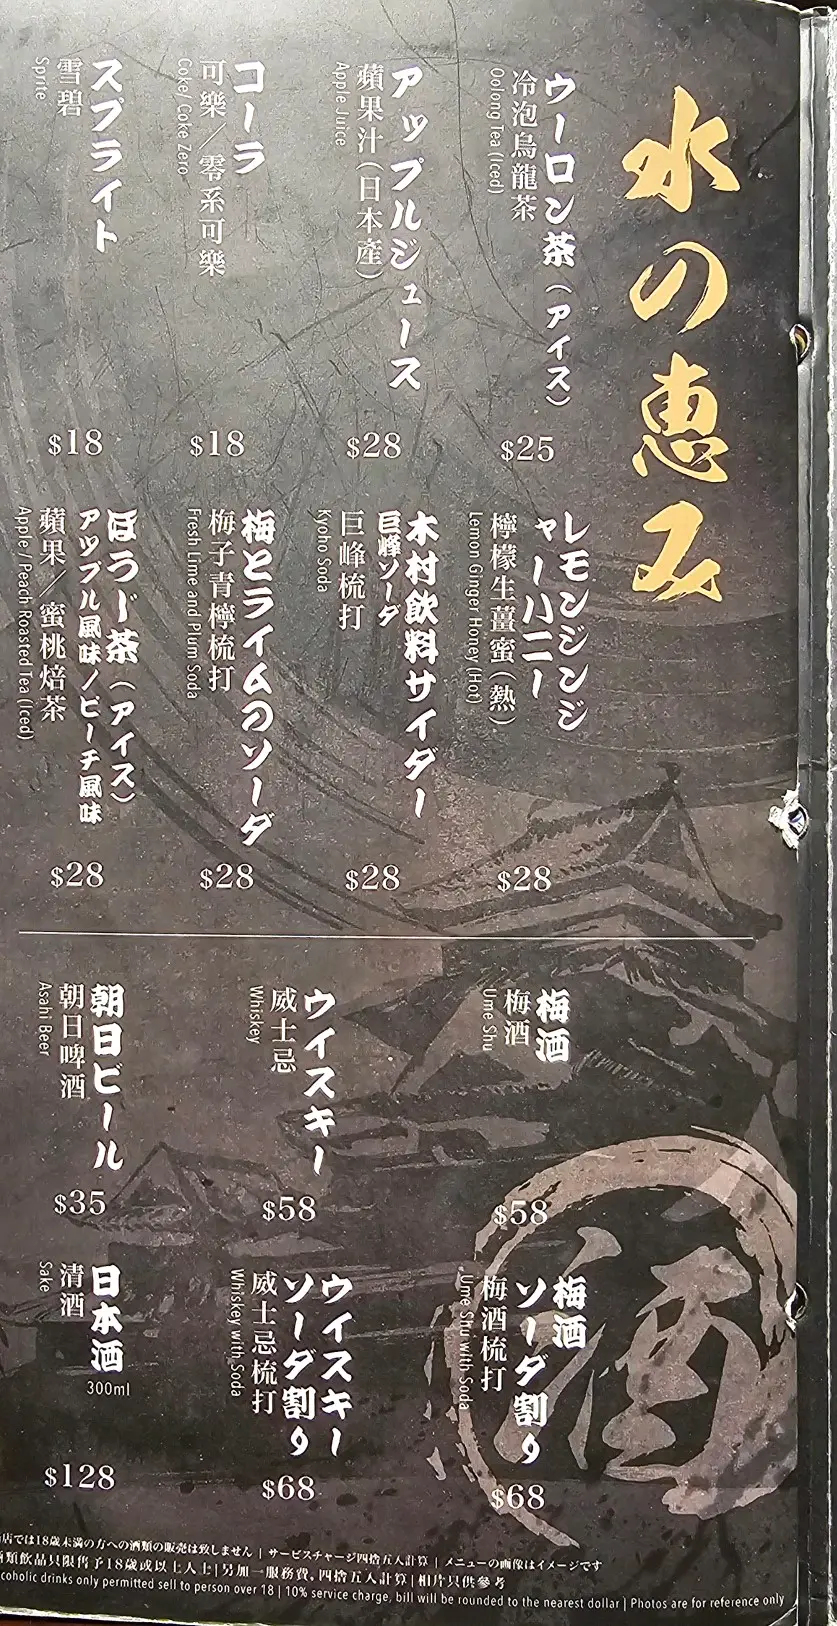 水の恵み
ウーロン茶（アイス）
冷泡烏龍茶
Oolong Tea (Iced)
$25
アップルジュース
蘋果汁（日本產）
Apple Juice
$28
コーラ
可樂／零系可樂
Coke/ Coke Zero
$18
スプライト
雪碧
Sprite
$18
レモンジンジ
ャーハニー
檸檬生薑蜜（熱）
Lemon Ginger Honey (Hot)
$28
木村飲料サイダー
巨峰ソーダ
巨峰梳打
Kyoho Soda
$28
梅とライムのソーダ
梅子青檸梳打
Fresh Lime and Plum Soda
$28
ほうじ茶（アイス）
アップル風味/ピーチ風味
蘋果／蜜桃焙茶
Apple / Peach Roasted Tea (Iced)
$28
酒
梅酒
梅酒
Ume Shu
$58
ウイスキー
威士忌
Whiskey
$58
朝日ビール
朝日啤酒
Asahi Beer
$35
梅酒
ソーダ割り
梅酒梳打
Ume Shu with Soda
$68
ウイスキー
ソーダ割り
威士忌梳打
Whiskey with Soda
$68
日本酒
300ml
清酒
Sake
$128
店では18歳未満の方への酒類の販売は致しません | サービスチャージ四捨五入計算 | メニューの画像はイメージです
類飲品只限售予18歲或以上人士 | 另加一服務費，四捨五入計算 | 相片只供參考
coholic drinks only permitted sell to person over 18 | 10% service charge, bill will be rounded to the nearest dollar | Photos are for reference only